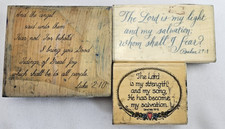 And the angel
said unto them
Fear not for behold
I bring you Good
Tidings of Great Joy
which shall be to all people
Luke 2:10
The Lord is my light
and my salvation;
whom shall I fear?
Psalm 27:1
The Lord
is my strength
and my song,
He has become
my salvation.